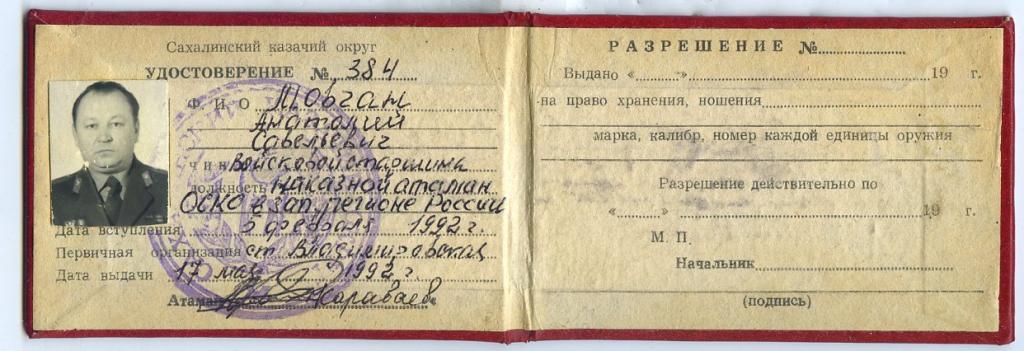 Сахалинский казачий округ
УДОСТОВЕРЕНИЕ № 384
Ф. И О Мовчан
Анатолий
Савельевич
чин Войсковой старшина
должность Наказной атаман
ОСКО в зап. регионе России
Дата вступления 5 февраля 1992 г.
Первичная организация ст. Владимировская
Дата выдачи 17 мая 1992 г.
Атаман Караваев
РАЗРЕШЕНИЕ №
Выдано « » 19 г.
на право хранения, ношения
марка, калибр, номер каждой единицы оружия
Разрешение действительно по
« » 19 г.
М. П.
Начальник
(подпись)